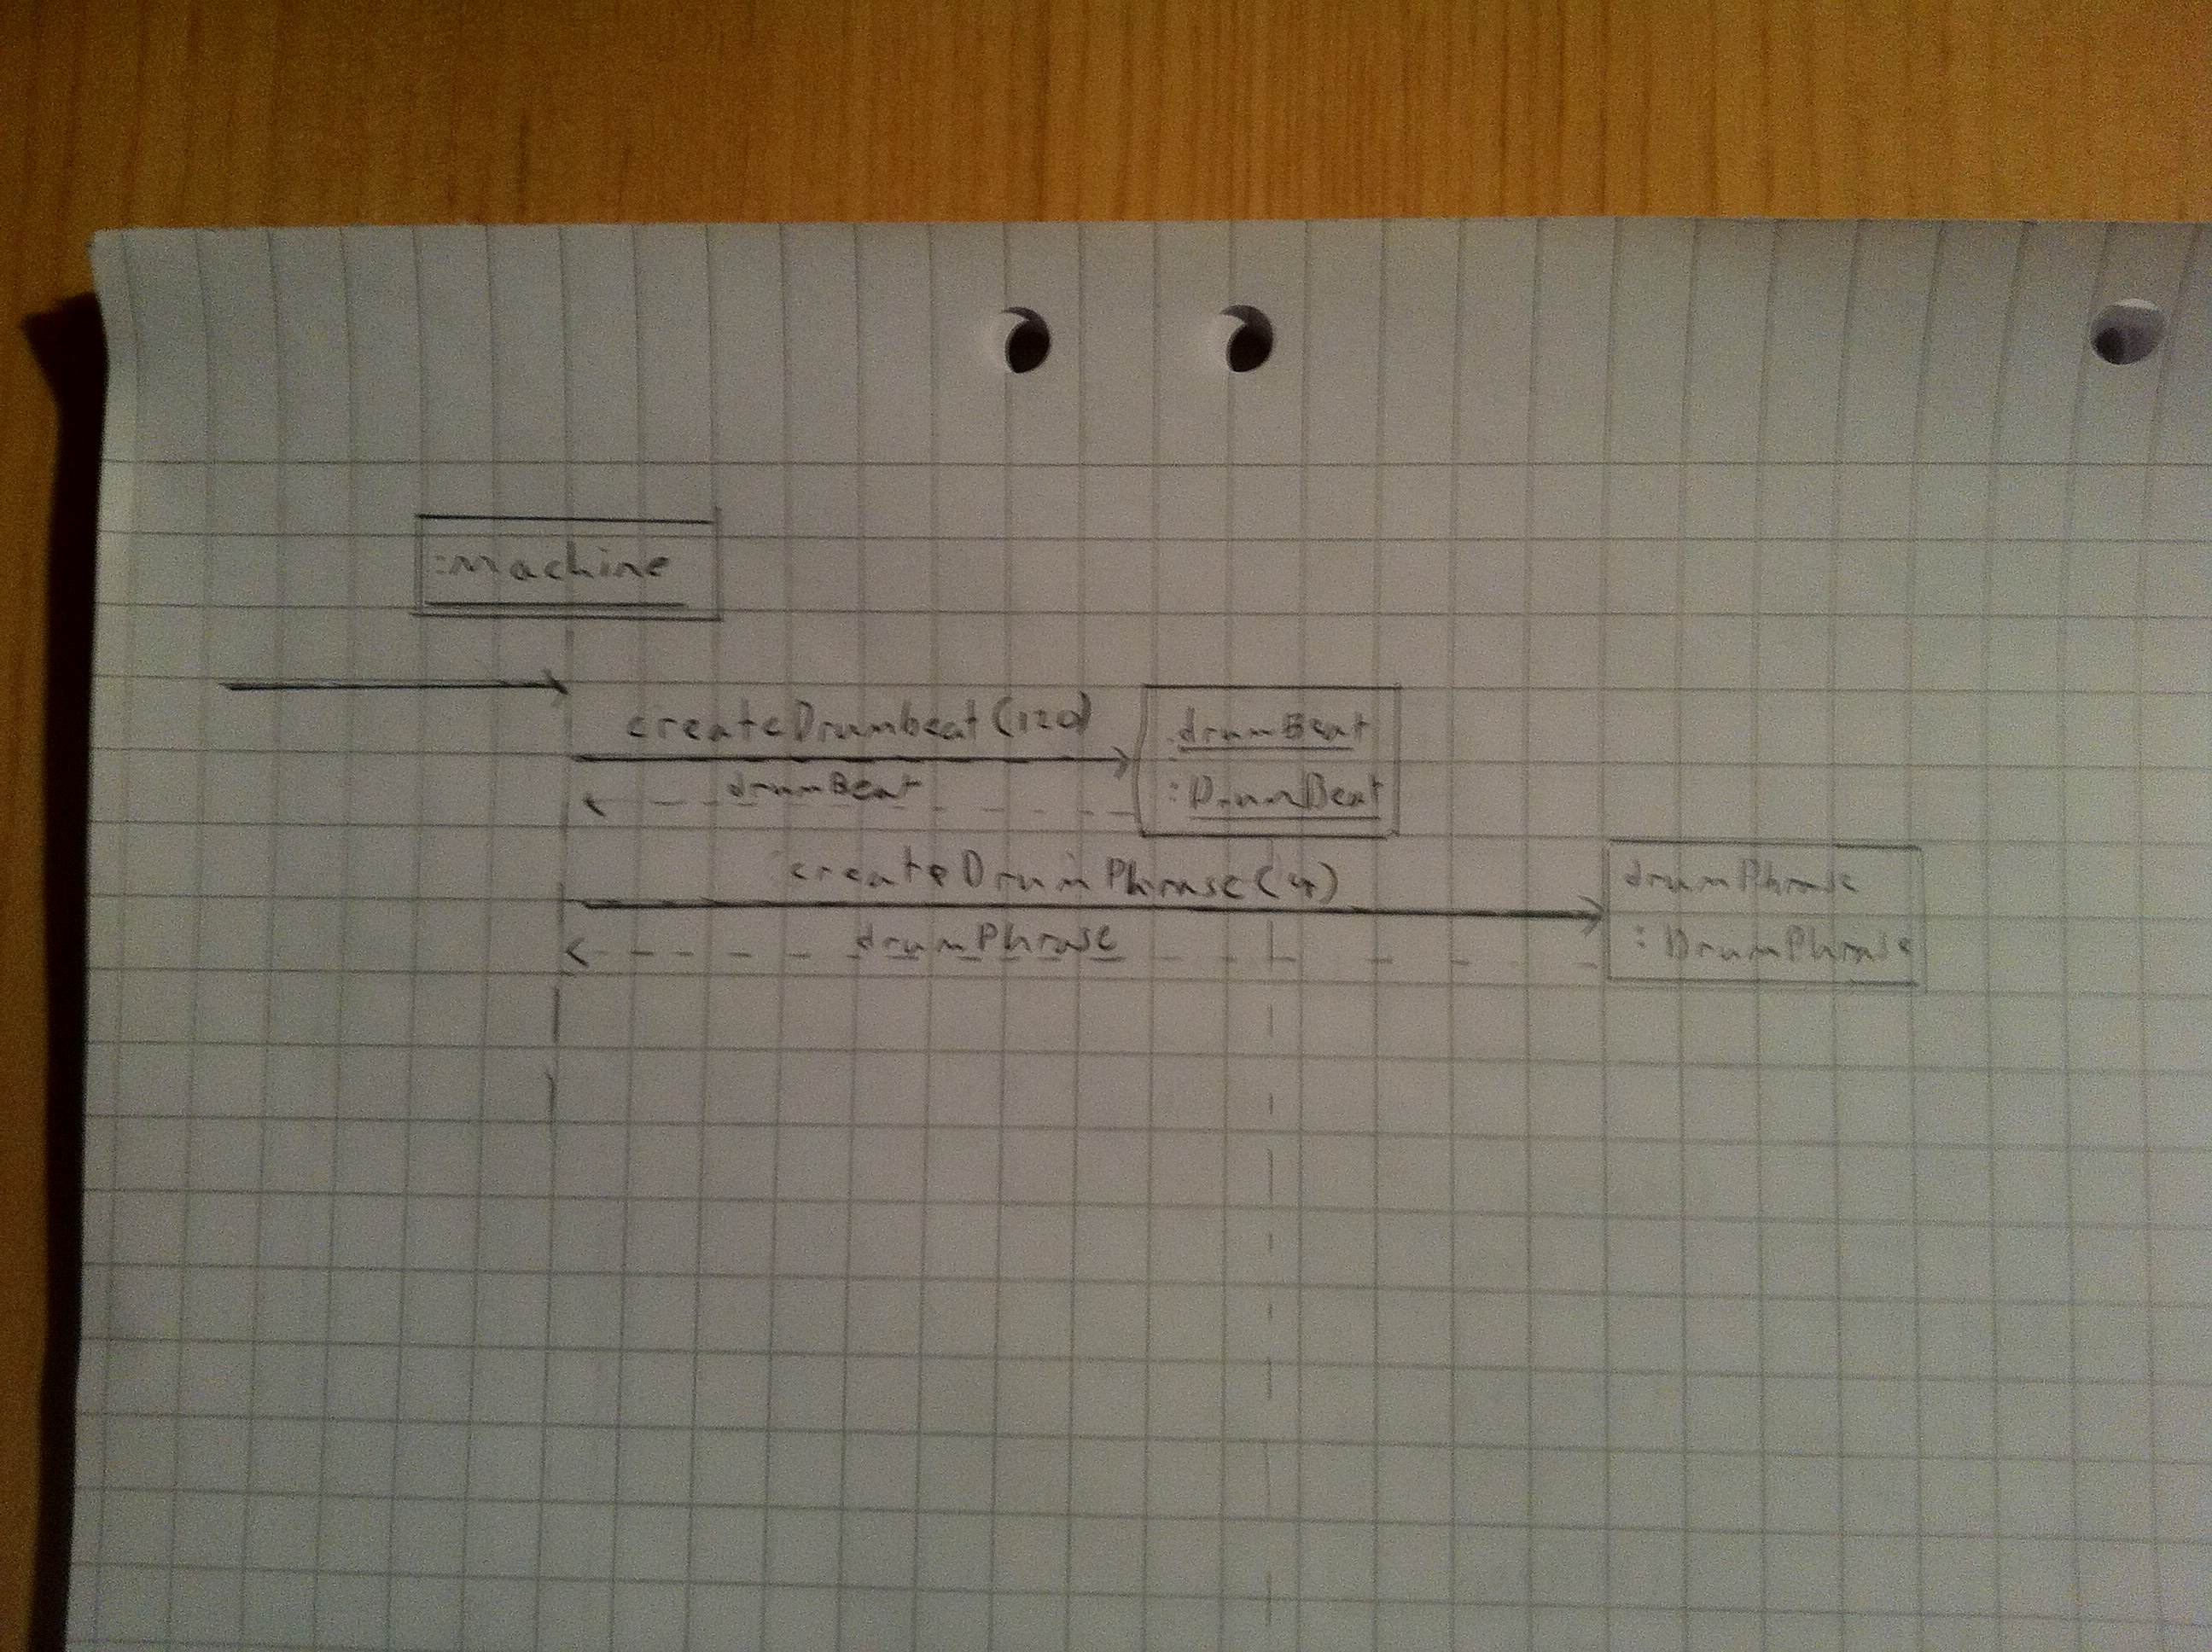 :machine
createDrumbeat(120)
drumBeat
:DrumBeat
drumBeat
createDrumPhrase(4)
drumPhrase
:DrumPhrase
drumPhrase